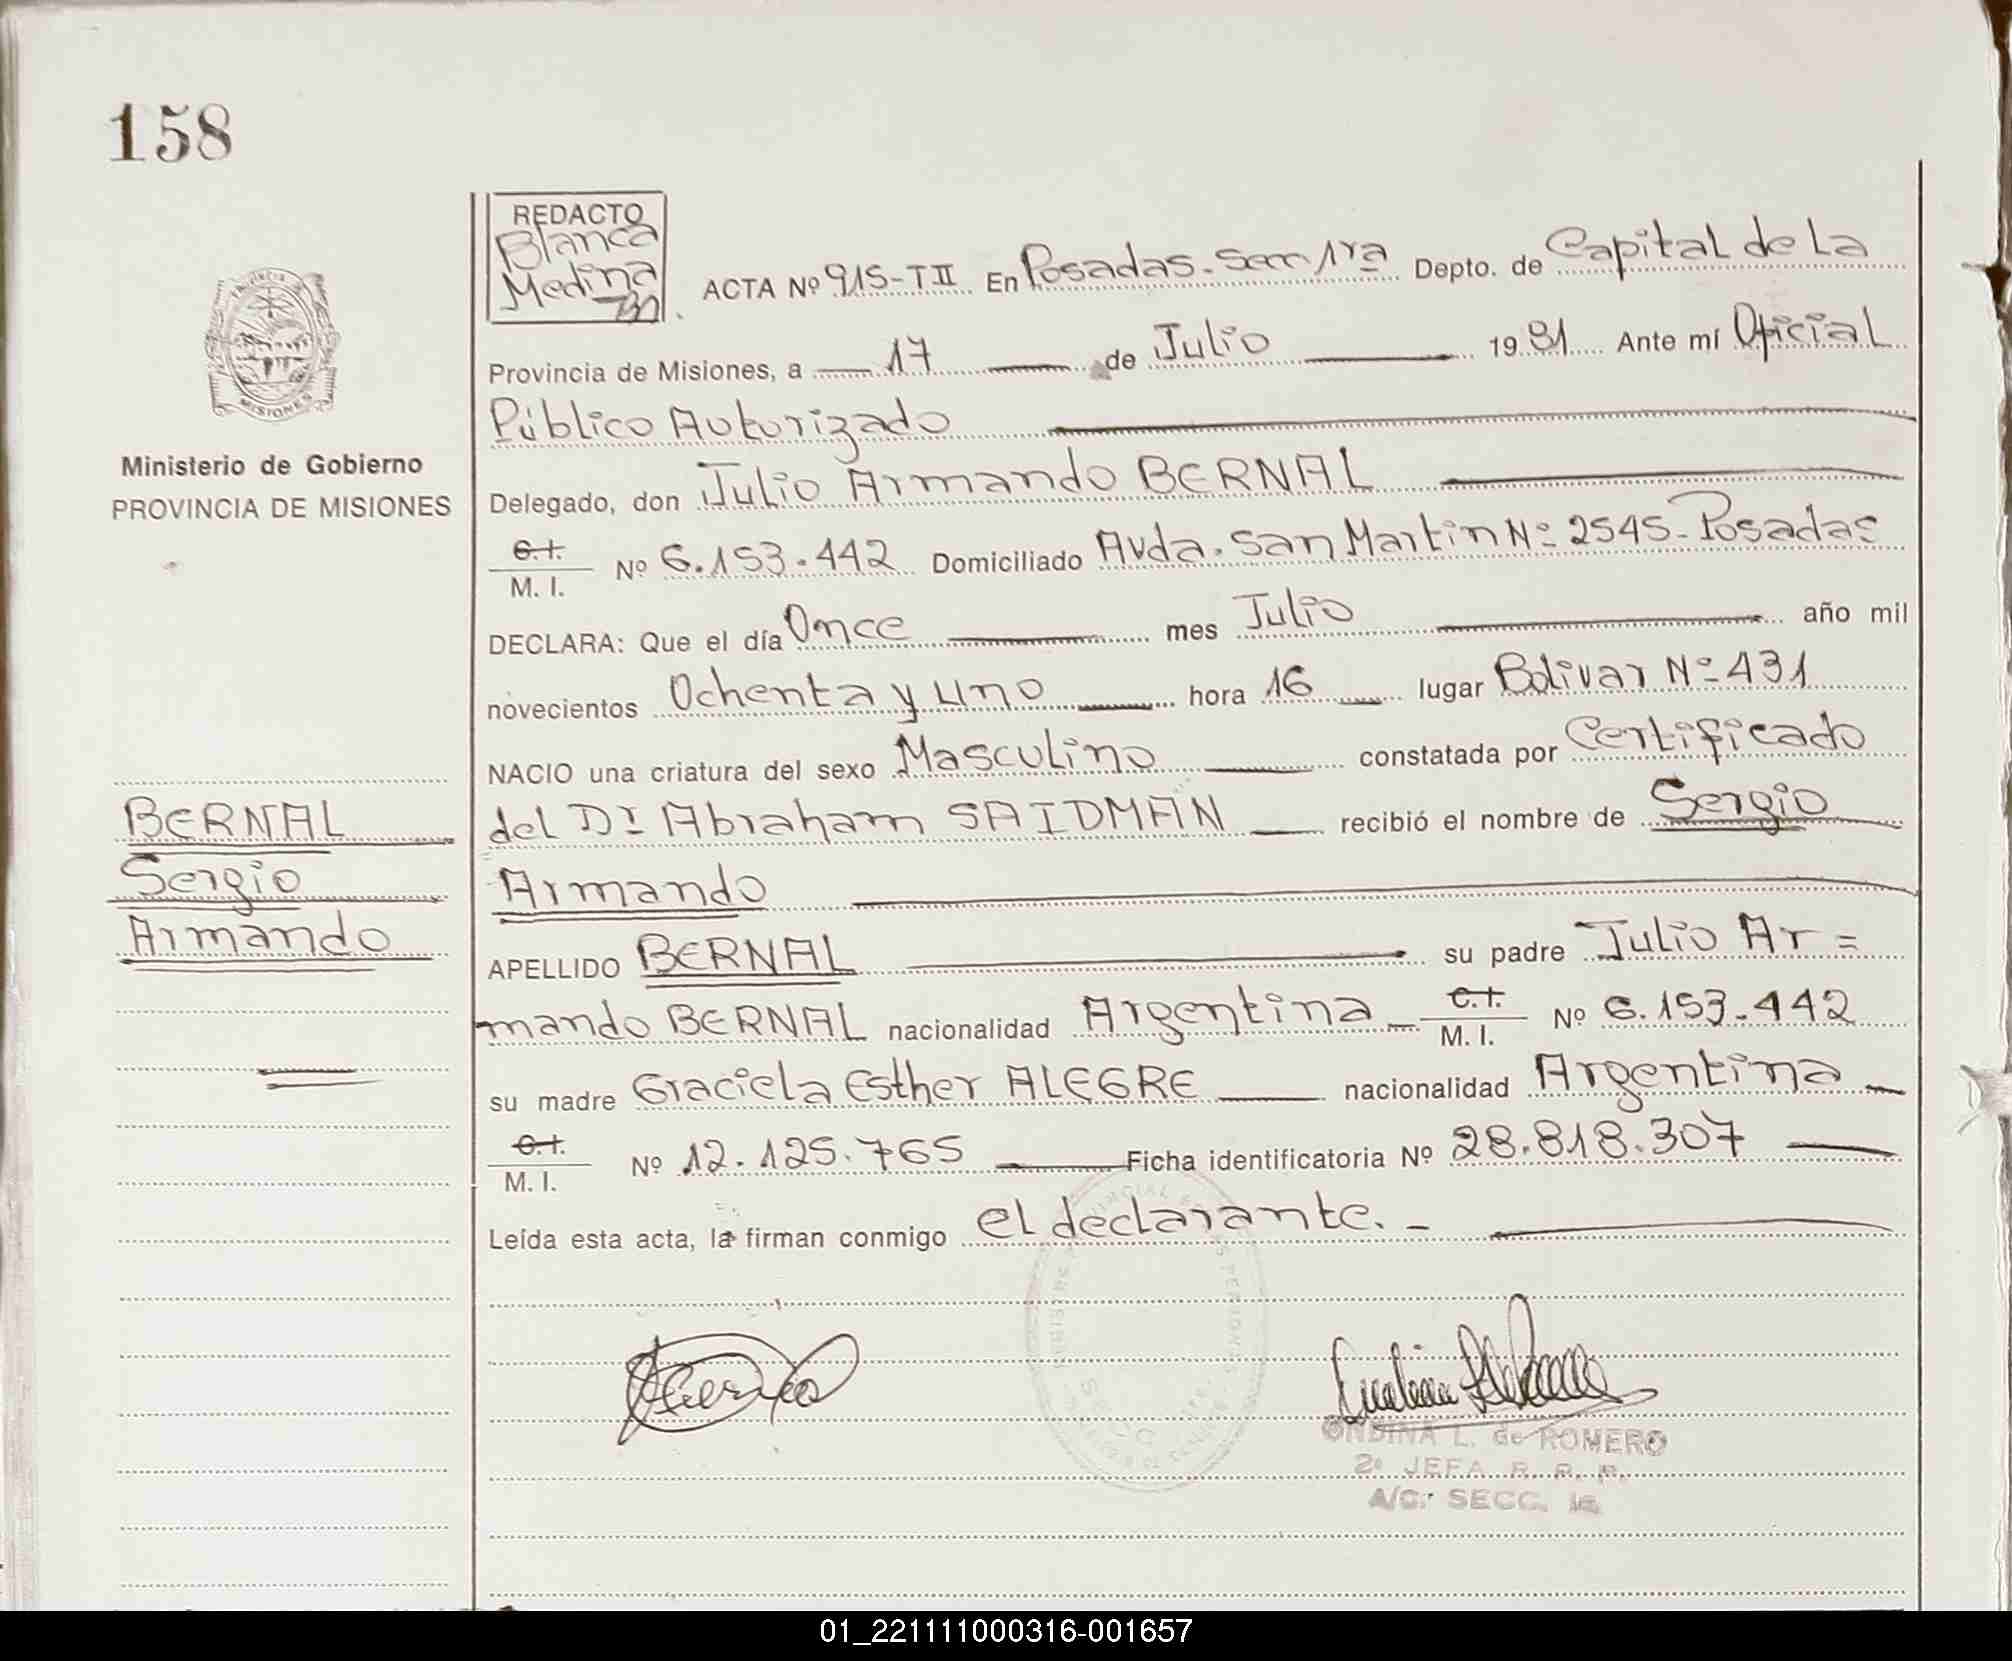 158
REDACTO
Blanca
Medina
ACTA Nº 915-TII En Posadas-Secc 1ra Depto. de Capital de La
Provincia de Misiones, a 17 de Julio 1981 Ante mí Oficial
Público Autorizado
Delegado, don Julio Armando BERNAL
C.I.
M. I. Nº 6.153.442 Domiciliado Avda. San Martin Nº 2545-Posadas
DECLARA: Que el día Once mes Julio año mil
novecientos Ochenta y uno hora 16 lugar Bolivar Nº 431
NACIO una criatura del sexo Masculino constatada por Certificado
del Dr Abraham SAIDMAN recibió el nombre de Sergio
Armando
APELLIDO BERNAL su padre Julio Ar=
mando BERNAL nacionalidad Argentina C.I. M. I. Nº 6.153.442
su madre Graciela Esther ALEGRE nacionalidad Argentina
C.I.
M. I. Nº 12.125.765 Ficha identificatoria Nº 28.818.307
Leída esta acta, la firman conmigo el declarante.-
PROVINCIA
MISIONES
Ministerio de Gobierno
PROVINCIA DE MISIONES
BERNAL
Sergio
Armando
ONDINA L. de ROMERO
2º JEFA R. R. P.
A/C. SECC. 1ª
01_221111000316-001657